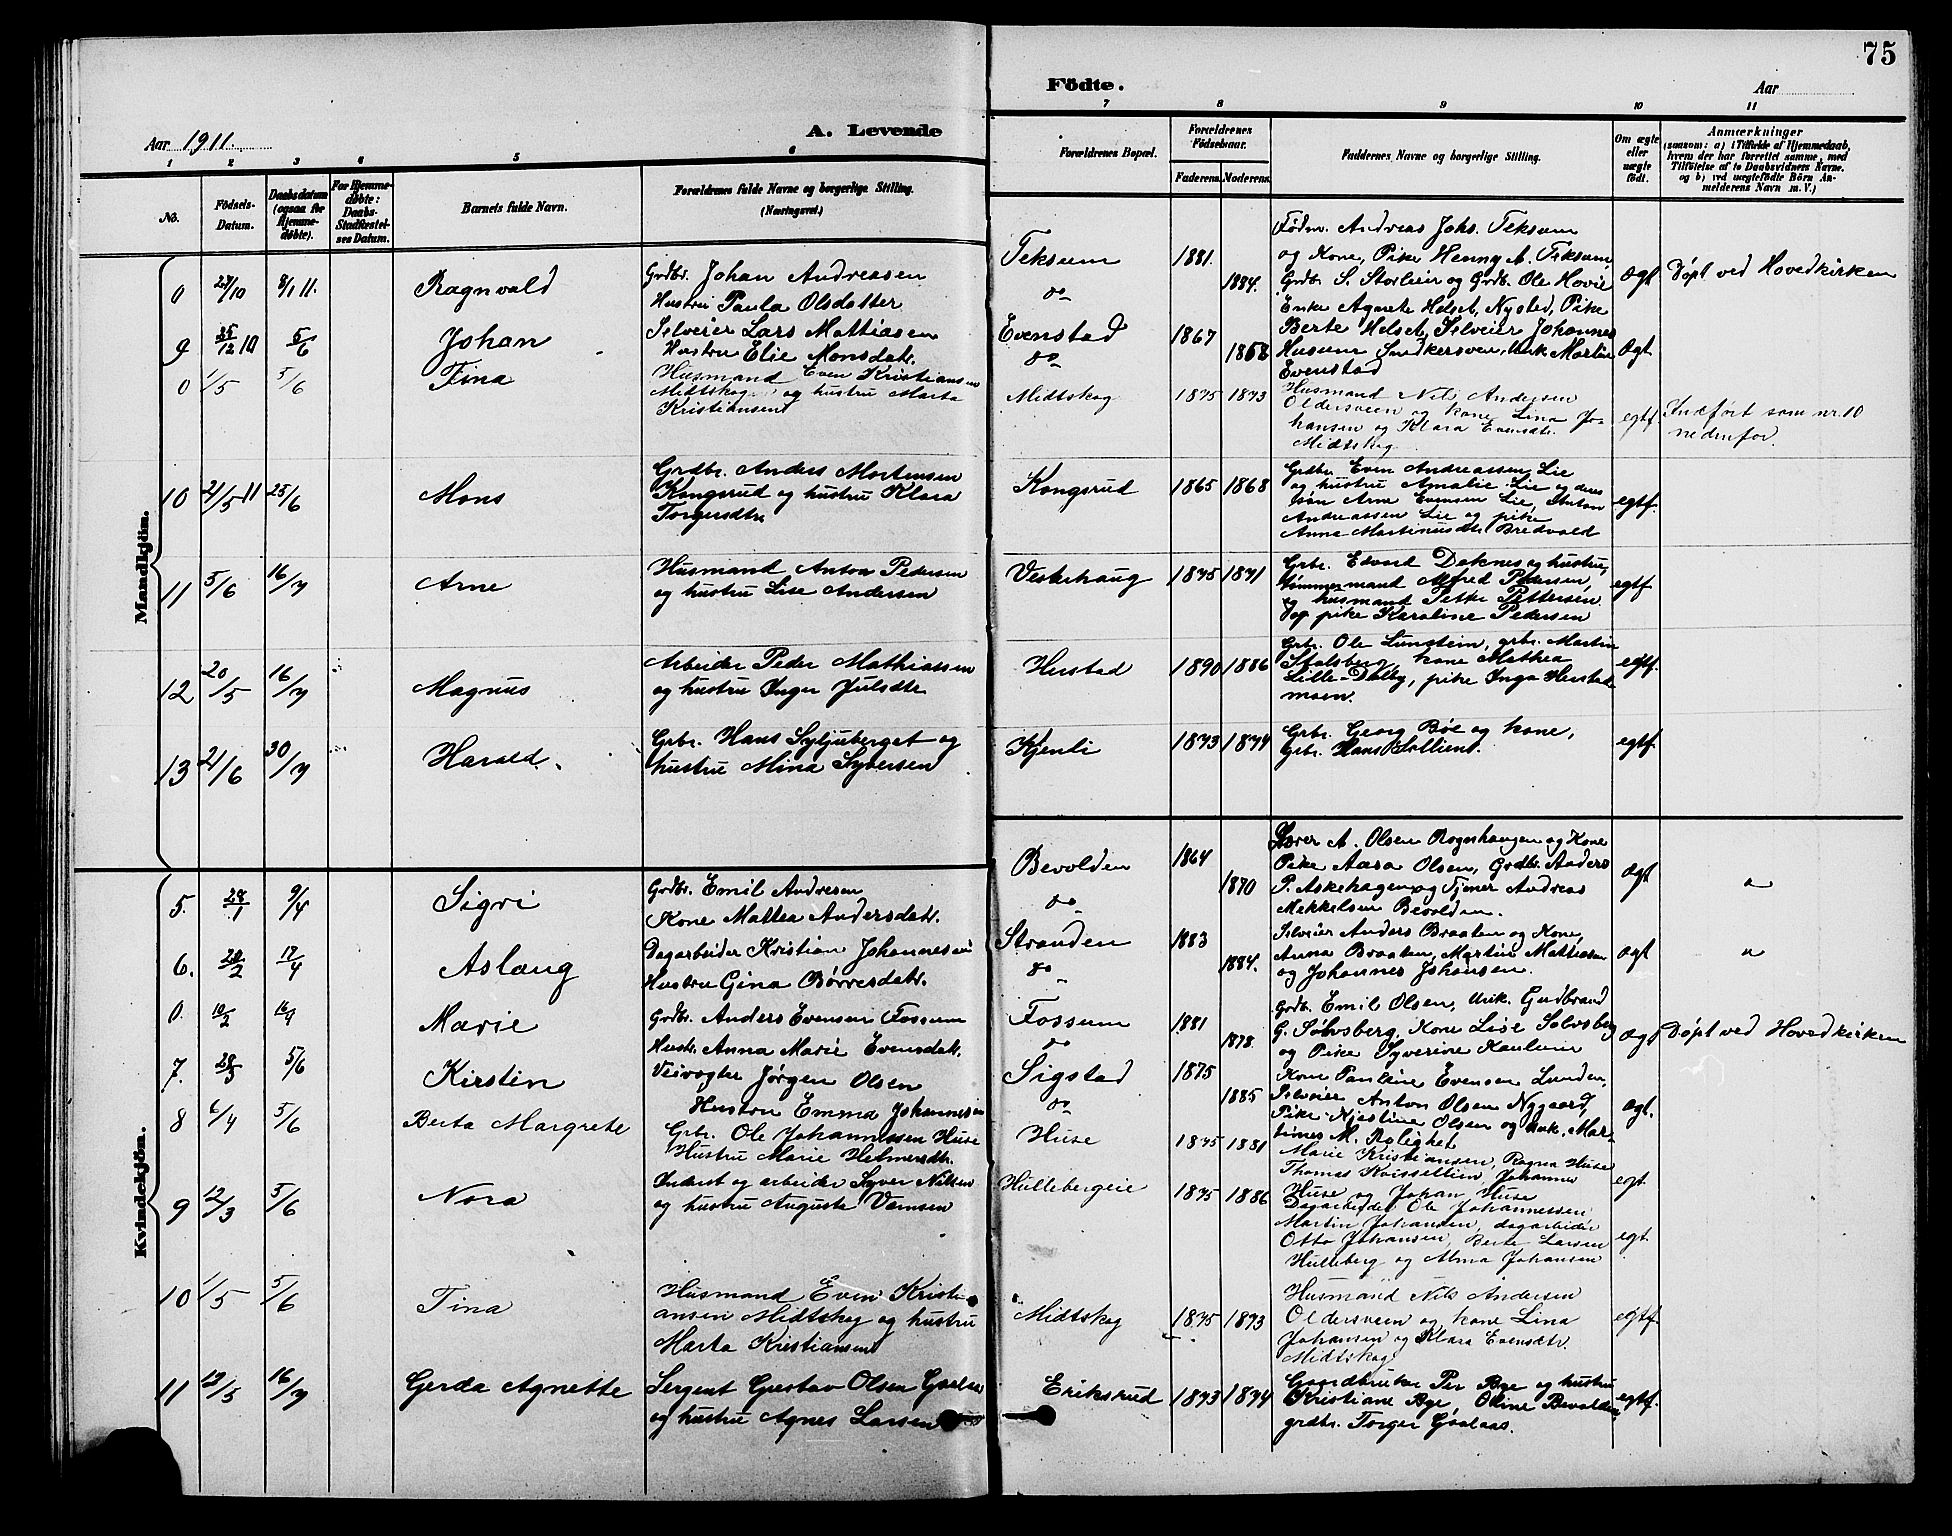 75
Födte.
Aar
Aar 1911.
A. Levende
1 2 3 4 5 6
7 8 9 10 11
No.
Födsels-Datum.
Daabsdatum (ogsaa for Hjemmedøbte).
For Hjemmedøbte: Daabs-Stadfæstelses Datum.
Barnets fulde Navn.
Forældrenes fulde Navne og borgerlige Stilling. (Næringsvei.)
Forældrenes Bopæl.
Forældrenes Födselsaar.
Faderens. Moderens.
Faddernes Navne og borgerlige Stilling.
Om ægte eller uægte födt.
Anmærkninger
(saasom: a) i Tilfælde af Hjemmedaab, hvem der har forrettet samme, med Tilføielse af to Daabsvidners Navne. og b) ved uægtefødte Börn Anmelderens Navn m. V.)
Mandkjön.
0 27/10 8/1 11. Ragnvald
Grdbr. Johan Andreasen
Hustru Paula Olsdatter
Teksum do 1881. 1884.
Fødm. Andreas Johs. Teksum
og Kone, Pike Henny A. Teksum,
Grdb. S. Storlien og Grdb. Ole Hovie
Ægt Døpt ved Hovedkirken
9 25/12 10 5/6 Johan
Selveier Lars Mattiasen
Hustru Elie Monsdatr.
Evenstad do 1867 1868
Enke Agnete Helset, Nysted, Pike
Berte Helset, Selveier Johannes
Husum Snekkersven, Unk. Martin
Evenstad
Ægt
0 1/5 5/6 Tina
Husmand Even Kristiansen
Midtskog og hustru Marta
Kristiansen
Midtskog 1875 1873
Husmand Nils Andersen
Oldersveen og kone Lina Jo-
hansen og Klara Evensdtr.
Midtskog
egtf. Indført som nr. 10
nedenfor.
10 21/5 11 25/6 Mons
Grdbr. Anders Mortensen
Kongsrud og hustru Klara
Torgersdtr.
Kongsrud 1865 1868
Grdbr. Even Andreassen Lie
og hustru Amalie Lie og deres
søn Arne Evensen Lie, Anton
Andreassen Lie og pike
Anna Martinusdtr. Bredvold
egtf.
11 5/6 16/7 Arne
Husmand Anton Pedersen
og hustru Lise Andersen
Vestehaug 1875 1871
Grbr. Edvard Døknes og hustru,
tømmermand Alfred Pedersen,
og husmand Petter Pettersen
og pike Karoline Pedersen
egtf.
12 20/5 16/7 Magnus
Arbeider Peder Mathiassen
og hustru Inger Julsdtr.
Herstad 1890 1886
Grbr. Ole Lunstein, grbr. Martin
Stalsberg, kone Mathea
Lille-Dølby, pike Inga Herstad
moen.
egtf.
13 21/6 30/7 Harald.
Grbr. Hans Syljuberget og
hustru Mina Syversen
Kjenli 1873 1874
Grbr. Georg Bøe og kone,
Grbr. Hans Sollien.
egtf.
Kvindekjön.
5. 28/1 9/4 Sigri
Grdbr. Emil Andresen
Kone Mattea Andersdatr.
Bevolden do 1864 1870
Lærer A. Olsen Rognhaugen og Kone
Pike Aasa Olsen, Grdbr. Anders
P. Askehagen og Tjener Andreas
Mekkelsen Bevolden.
Ægt "
6. 20/2 17/4 Aslaug
Dagarbeider Kristian Johannesen
Hustru Gina Børresdatr.
Stranden do 1883 1884.
Selveier Anders Braaten og Kone,
Anna Braaten, Martin Mattiasen
og Johannes Johansen.
Ægt "
0. 10/2 16/4 Marie
Grdbr. Anders Evensen Fossum
Hustr. Anna Marie Evensdatr.
Fossum do 1881 1878.
Grdbr. Emil Olsen, Unk. Gudbrand
G. Sølvsberg, Kone Lise Sølvsberg
og Pike Syverine Kaulum
Ægt Døpt ved Hovedkirken
7. 28/3 5/6 Kirstin
Veivogter Jørgen Olsen
Hustru Emma Johannesen
Sigstad do 1875 1885
Kone Pauline Evensen Lunden,
Selveier Anton Olsen Nygaard,
Pike Kjestina Olsen og Unk. Mar-
tines M. Rolighet
Ægt.
8 6/4 5/6 Berta Margrete
Grbr. Ole Johannessen Huse
Hustru Marie Helmersdtr.
Huse 1875 1881
Marie Kristiansen, Ragna Huse
Thomas Kvissellien, Johanne
Huse og Johan Huse
egt
9 12/3 5/6 Nora
Inderst og arbeider Syver Nilsen
og hustru Auguste Vamsen
Hullebergeie 1875 1886
Dagarbeider Ole Johannessen
Martin Johansen, dagarbeider
Otto Johansen, Berte Larsen
Hulleberg og Alma Johansen
egt
10 1/5 5/6 Tina
Husmand Even Kristi-
ansen Midtskog og hustru
Marta Kristiansen
Midtskog 1875 1873
Husmand Nils Andersen
Oldersveen og kone Lina
Johansen og Klara Evensdtr.
Midtskog
egtf.
11 12/5 16/7 Gerda Agnette
Sergent Gustav Olsen Gaalaas
og hustru Agnes Larsen
Erikstrud 1873 1874
Gaardbruker Per Bye og hustru
Kristiane Bye, Oline Bevolden,
grdbr. Torger Gaalaas.
egtf.